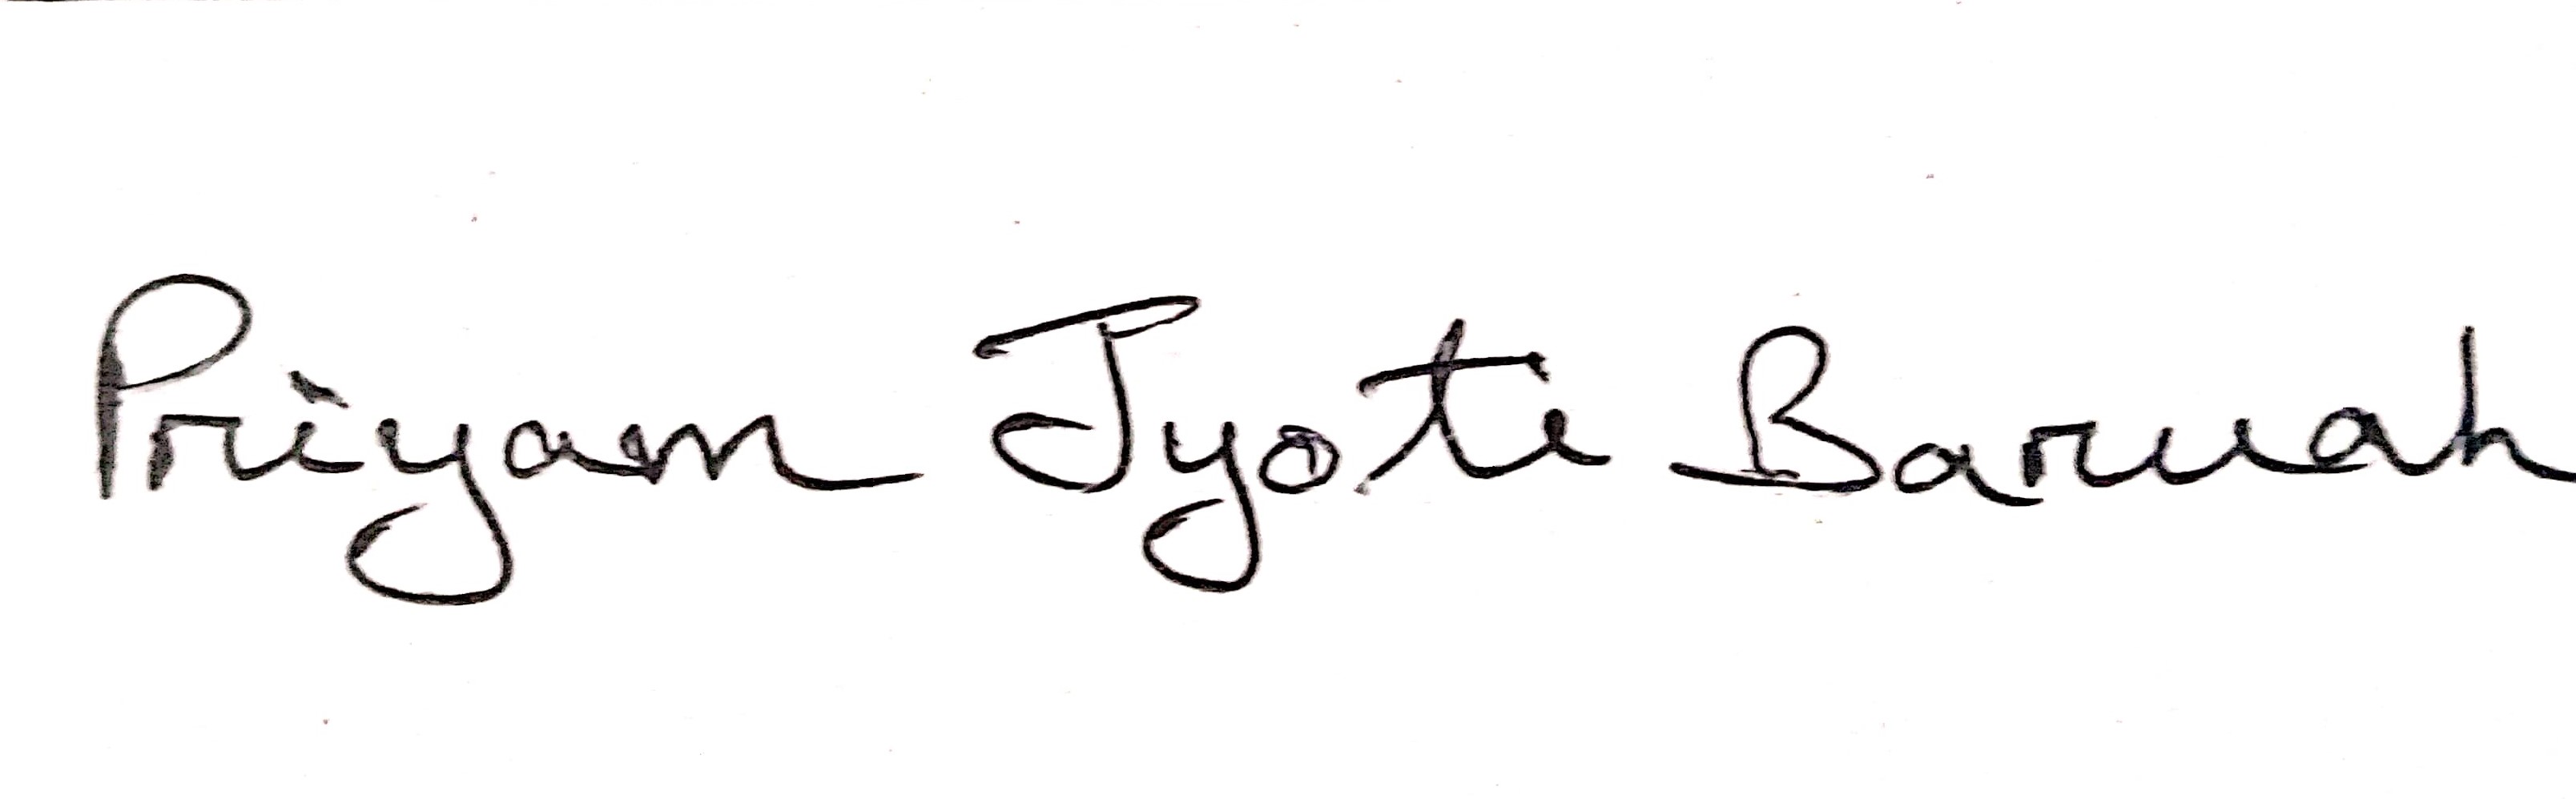 Priyam Jyoti Baruah